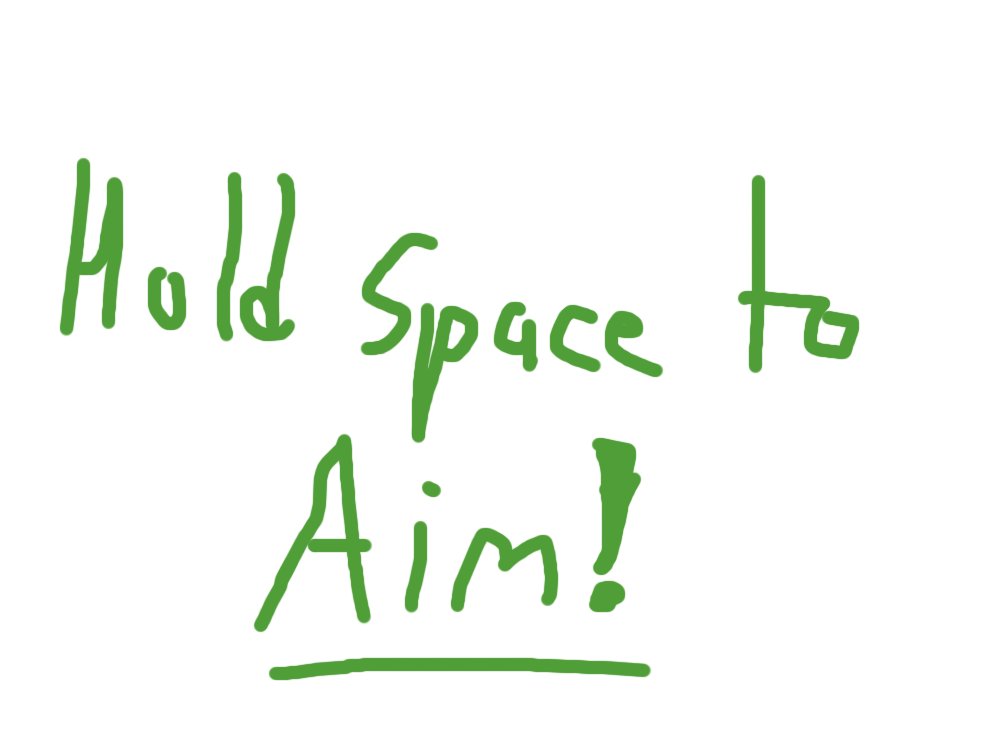 Hold Space to
Aim!